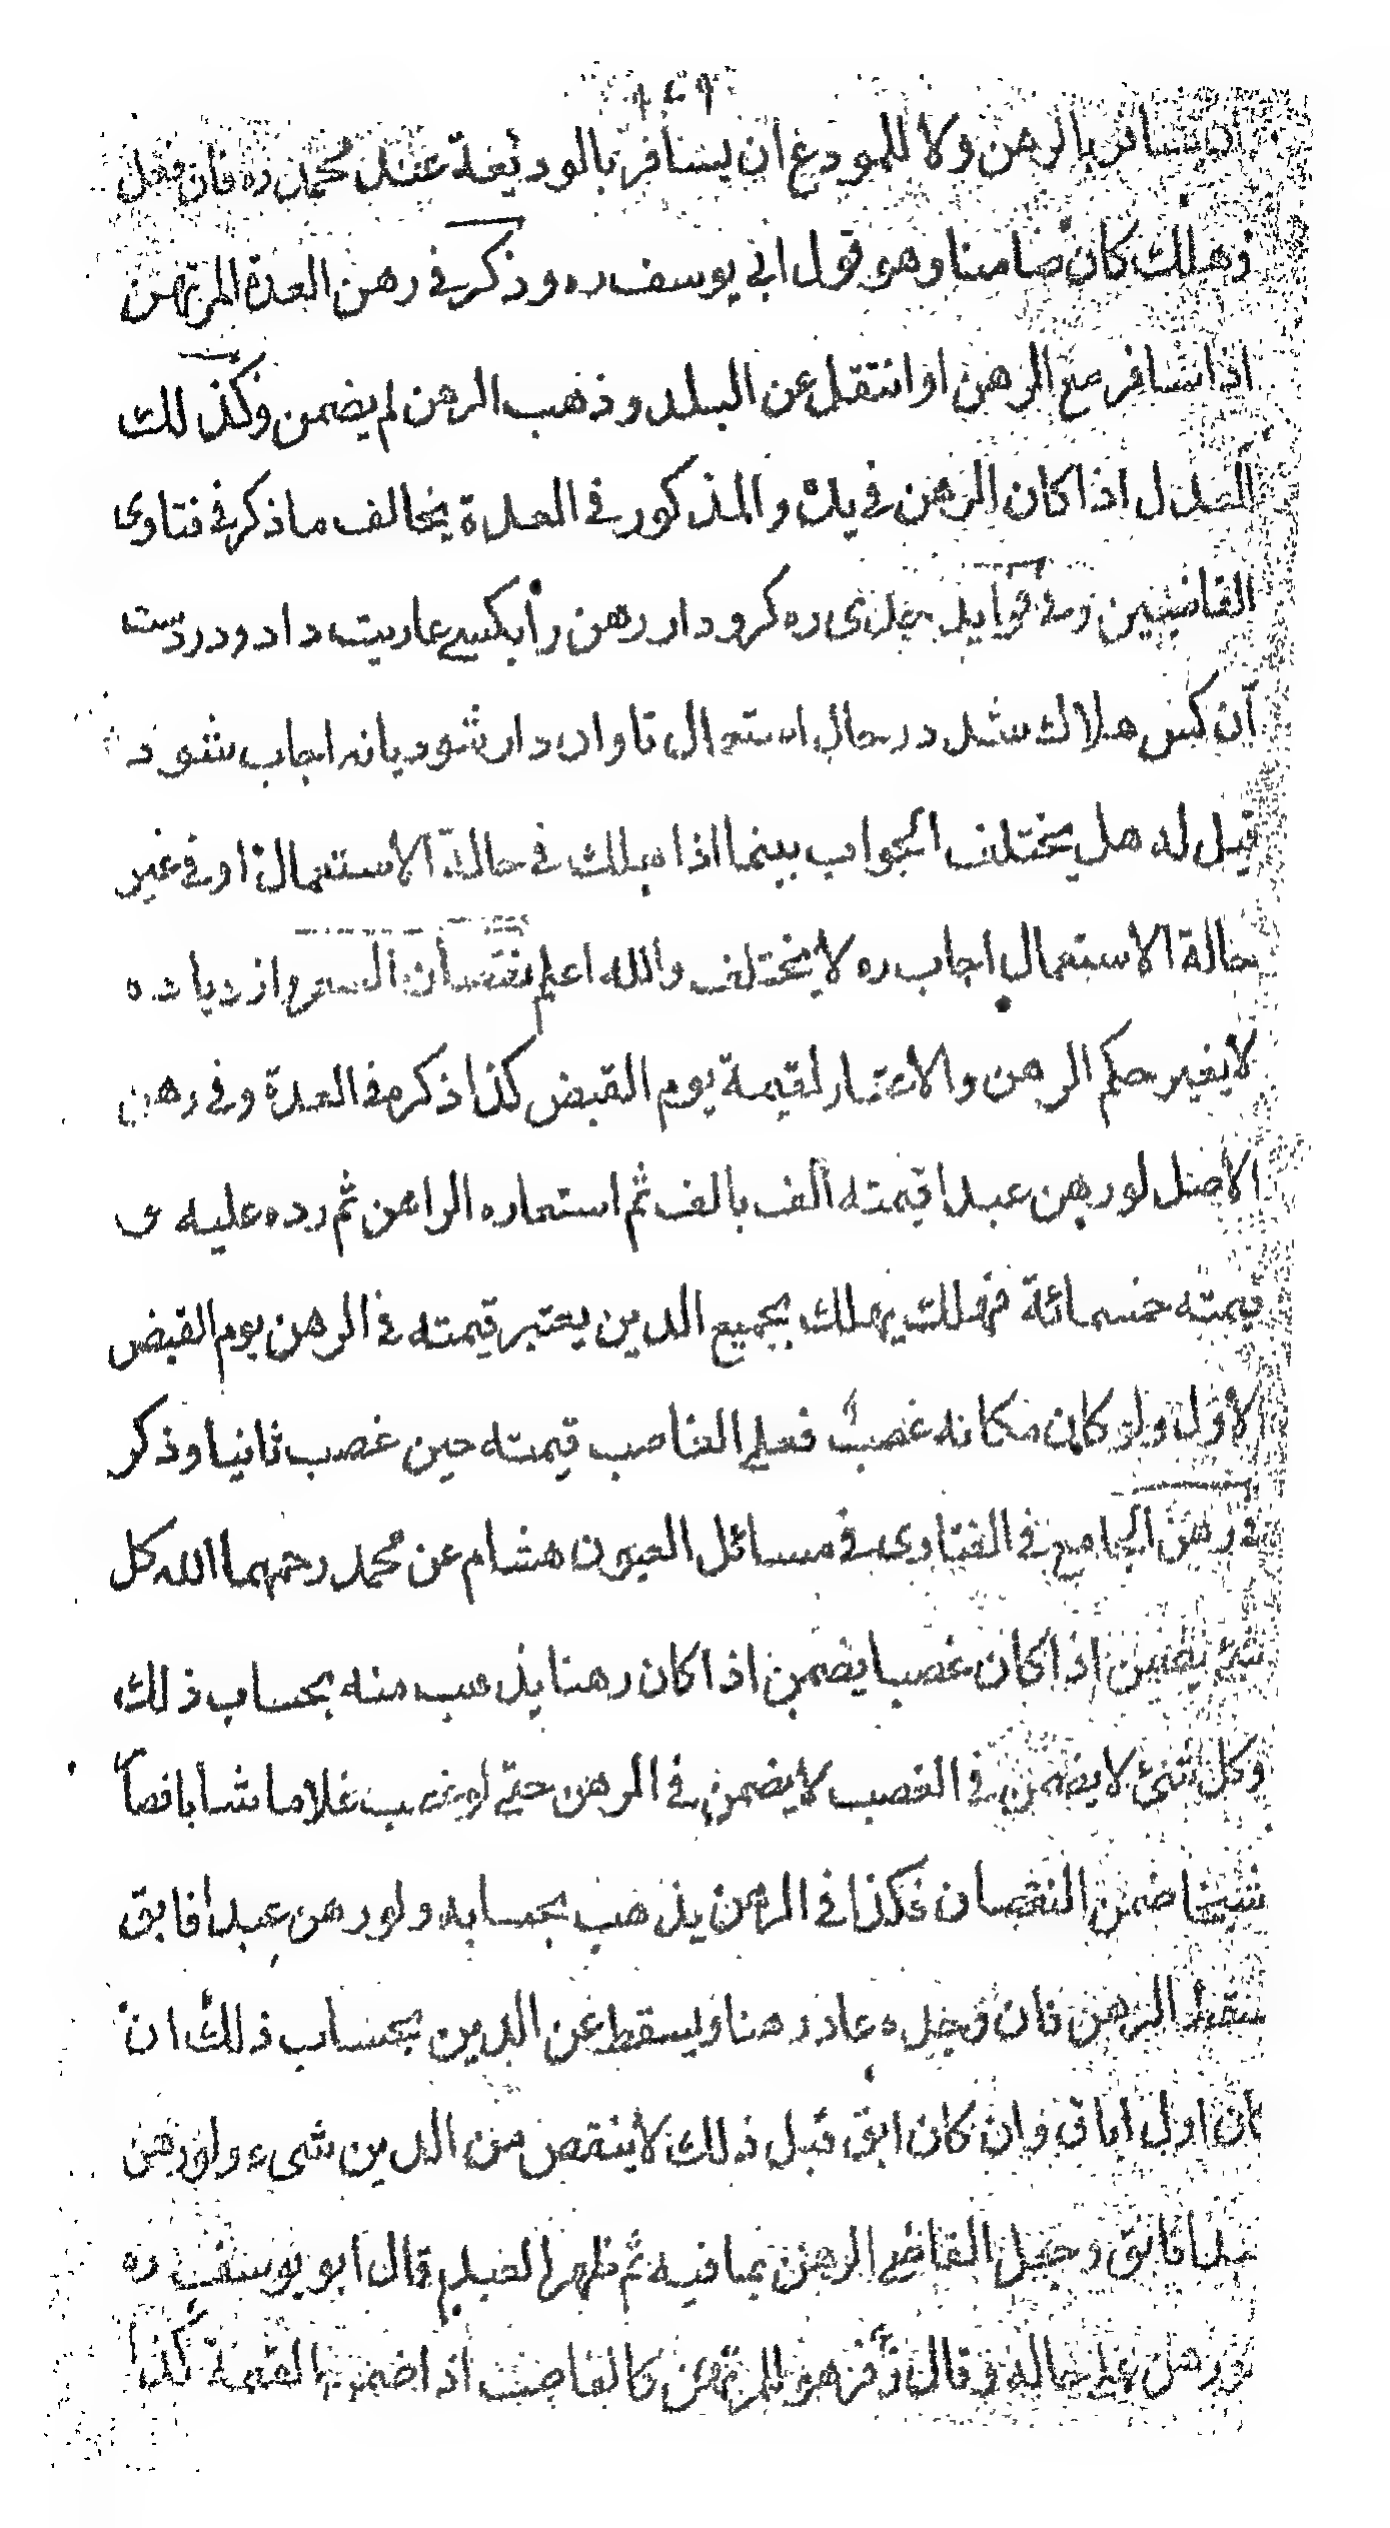 ان يسافر بالرهن ولا للمودع ان يسافر بالوديعة عند محمد ره فان فعل
وهلك كان ضامنا وهو قول ابي يوسف ره وذكر في رهن العدة المرتهن
اذا سافر مع الرهن او انتقل عن البلد وذهب الرهن لم يضمن وكذلك
العدل اذا كان الرهن في يده والمذكور في العدة يخالف ما ذكر في فتاوى
القاضيين وفي فوايد ره كرو دار رهن را بكسے عاريت داد ودر دست
آن كس هلاك شد در حال استعمال تاوان دار شود يا نه اجاب شود
قيل له هل يختلف الجواب بينما اذا هلك في حالة الاستعمال او في غير
حالة الاستعمال اجاب ره لا يختلف والله اعلم نقصان السعر وازدياده
لا يغير حكم الرهن والاعتبار لقيمة يوم القبض كذا ذكره في العدة وفي رهن
الاصل لو رهن عبدا قيمته الف بالف ثم استعاره الراهن ثم رده عليه و
قيمته خمسمائة فهلك يهلك بجميع الدين يعتبر قيمته في الرهن يوم القبض
الاول ولو كان مكانه غصب فعلى الغاصب قيمته حين غصب ثانيا وذكر
في رهن الجامع في الفتاوى في مسائل العيون هشام عن محمد رحمهما الله كل
شئ يضمن اذا كان غصبا يضمن اذا كان رهنا يذهب منه بحساب ذلك
وكل شئ لا يضمن في الغصب لا يضمن في الرهن حتى لو غصب غلاما شابا فصار
شيخا ضمن النقصان فكذا في الرهن يذهب بحسابه ولو رهن عبدا فابق
سقط الرهن فان وجده عاد رهنا ويسقط عن الدين بحساب ذلك ان
ان اول اباق وان كان ابق قبل ذلك لا ينقص من الدين شيء ولو رهن
عبدا فابق وجعل القاضى الرهن بما فيه ثم ظهر العبد قال ابو يوسف ره
هو رهن على حاله وقال زفر هو للمرتهن كالغاصب اذا ضمن القيمة كذا